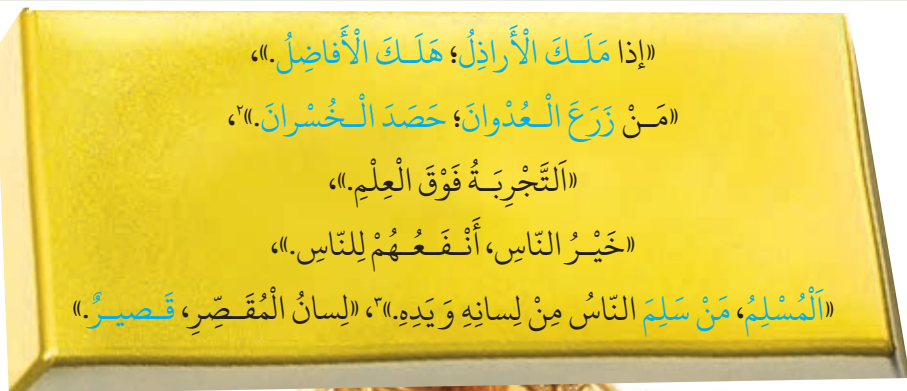 «إذا مَلَكَ الْأَراذِلُ؛ هَلَكَ الْأَفاضِلُ.»،
«مَنْ زَرَعَ الْعُدْوانَ؛ حَصَدَ الْخُسْرانَ.»۲،
«اَلتَّجْرِبَةُ فَوْقَ الْعِلْمِ.»،
«خَيْرُ النّاسِ، أَنْفَعُهُمْ لِلنّاسِ.»،
«اَلْمُسْلِمُ، مَنْ سَلِمَ النّاسُ مِنْ لِسانِهِ وَ يَدِهِ.»۳، «لِسانُ الْمُقَصِّرِ، قَصيرٌ.»